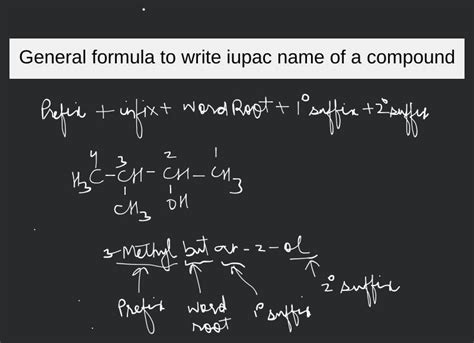 General formula to write iupac name of a compound
Prefix + infix + word Root + 1° suffix + 2° suffix
4 3 2 1
H₃C-CH-CH-CH₃
CH₃ OH
3-Methyl but an-2-ol
Prefix word root 1° suffix 2° suffix